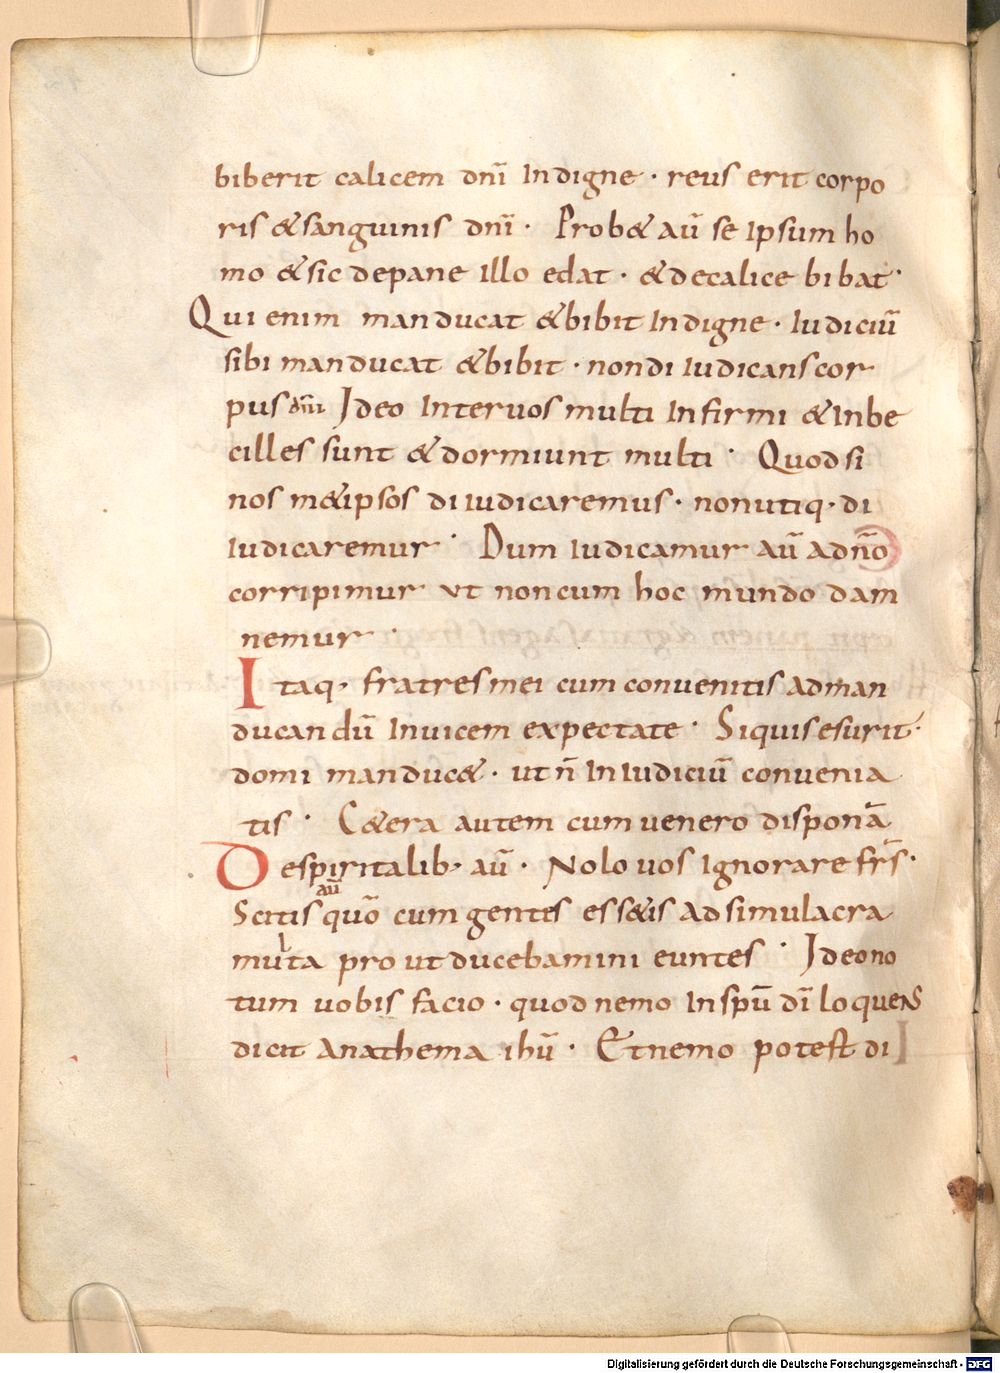 biberit calicem dnī Indigne · reus erit corpo
ris &sanguinis dnī · Prob& aū se Ipsum ho
mo &sic depane Illo edat · &decalice bibat ·
Qui enim manducat &bibit Indigne · Iudiciū
sibi manducat &bibit · nondi Iudicans cor
pus dnī Ideo Inter uos multi Infirmi &Inbe
cilles sunt &dormiunt multi · Quod si
nos m&ipsos di iudicaremus · non utiq· di
Iudicaremur · Dum Iudicamur aū adn̄o
corripimur ut non cum hoc mundo dam
nemur ·
Itaq· fratres mei cum conuenitis adman
ducandū Inuicem expectate · Siquis esurit ·
domi manduc& · ut n̄ In Iudiciū conuenia
tis · C&era autem cum uenero disponā
De spiritalib· aū · Nolo uos Ignorare fr̄s ·
aū
Scitis quō cum gentes ess&is ad simulacra
multa prout ducebamini euntes · Ideo no
tum uobis facio · quod nemo In spū dī loquens
dicit Anathema ihū · Et nemo potest di
Digitalisierung gefördert durch die Deutsche Forschungsgemeinschaft - DFG